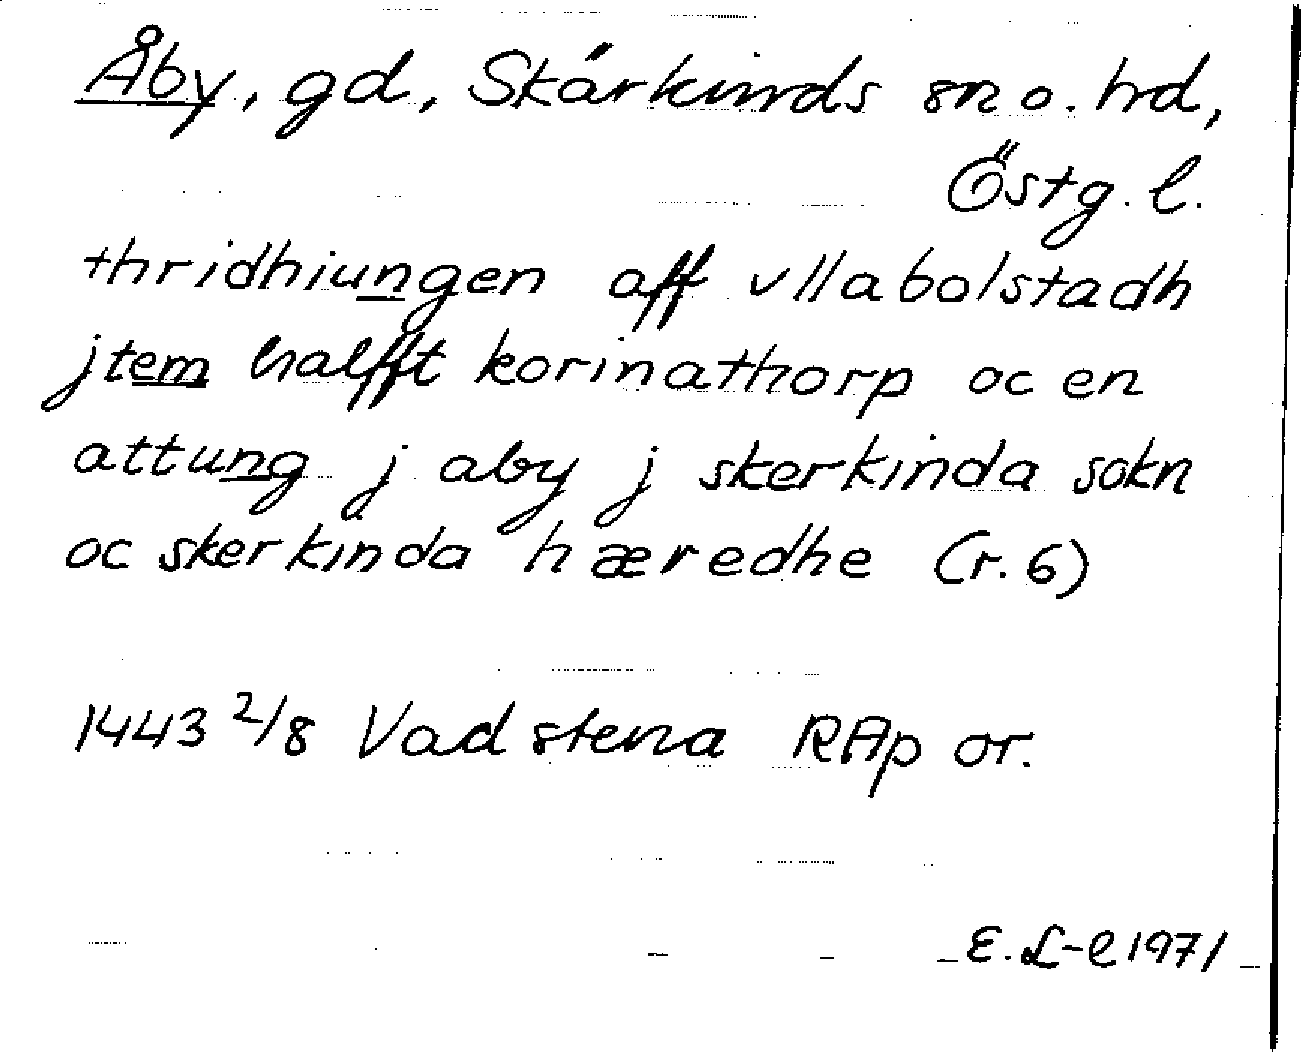 Åby, gd, Skärkinds sn o. hd,
Östg. l.
thridhiungen aff vllabolstadh
jtem halfft korinathorp oc en
attung j aby j skerkinda sokn
oc skerkinda hæredhe (r. 6)
1443 2/8 Vadstena RAp or.
E. L-l 1971